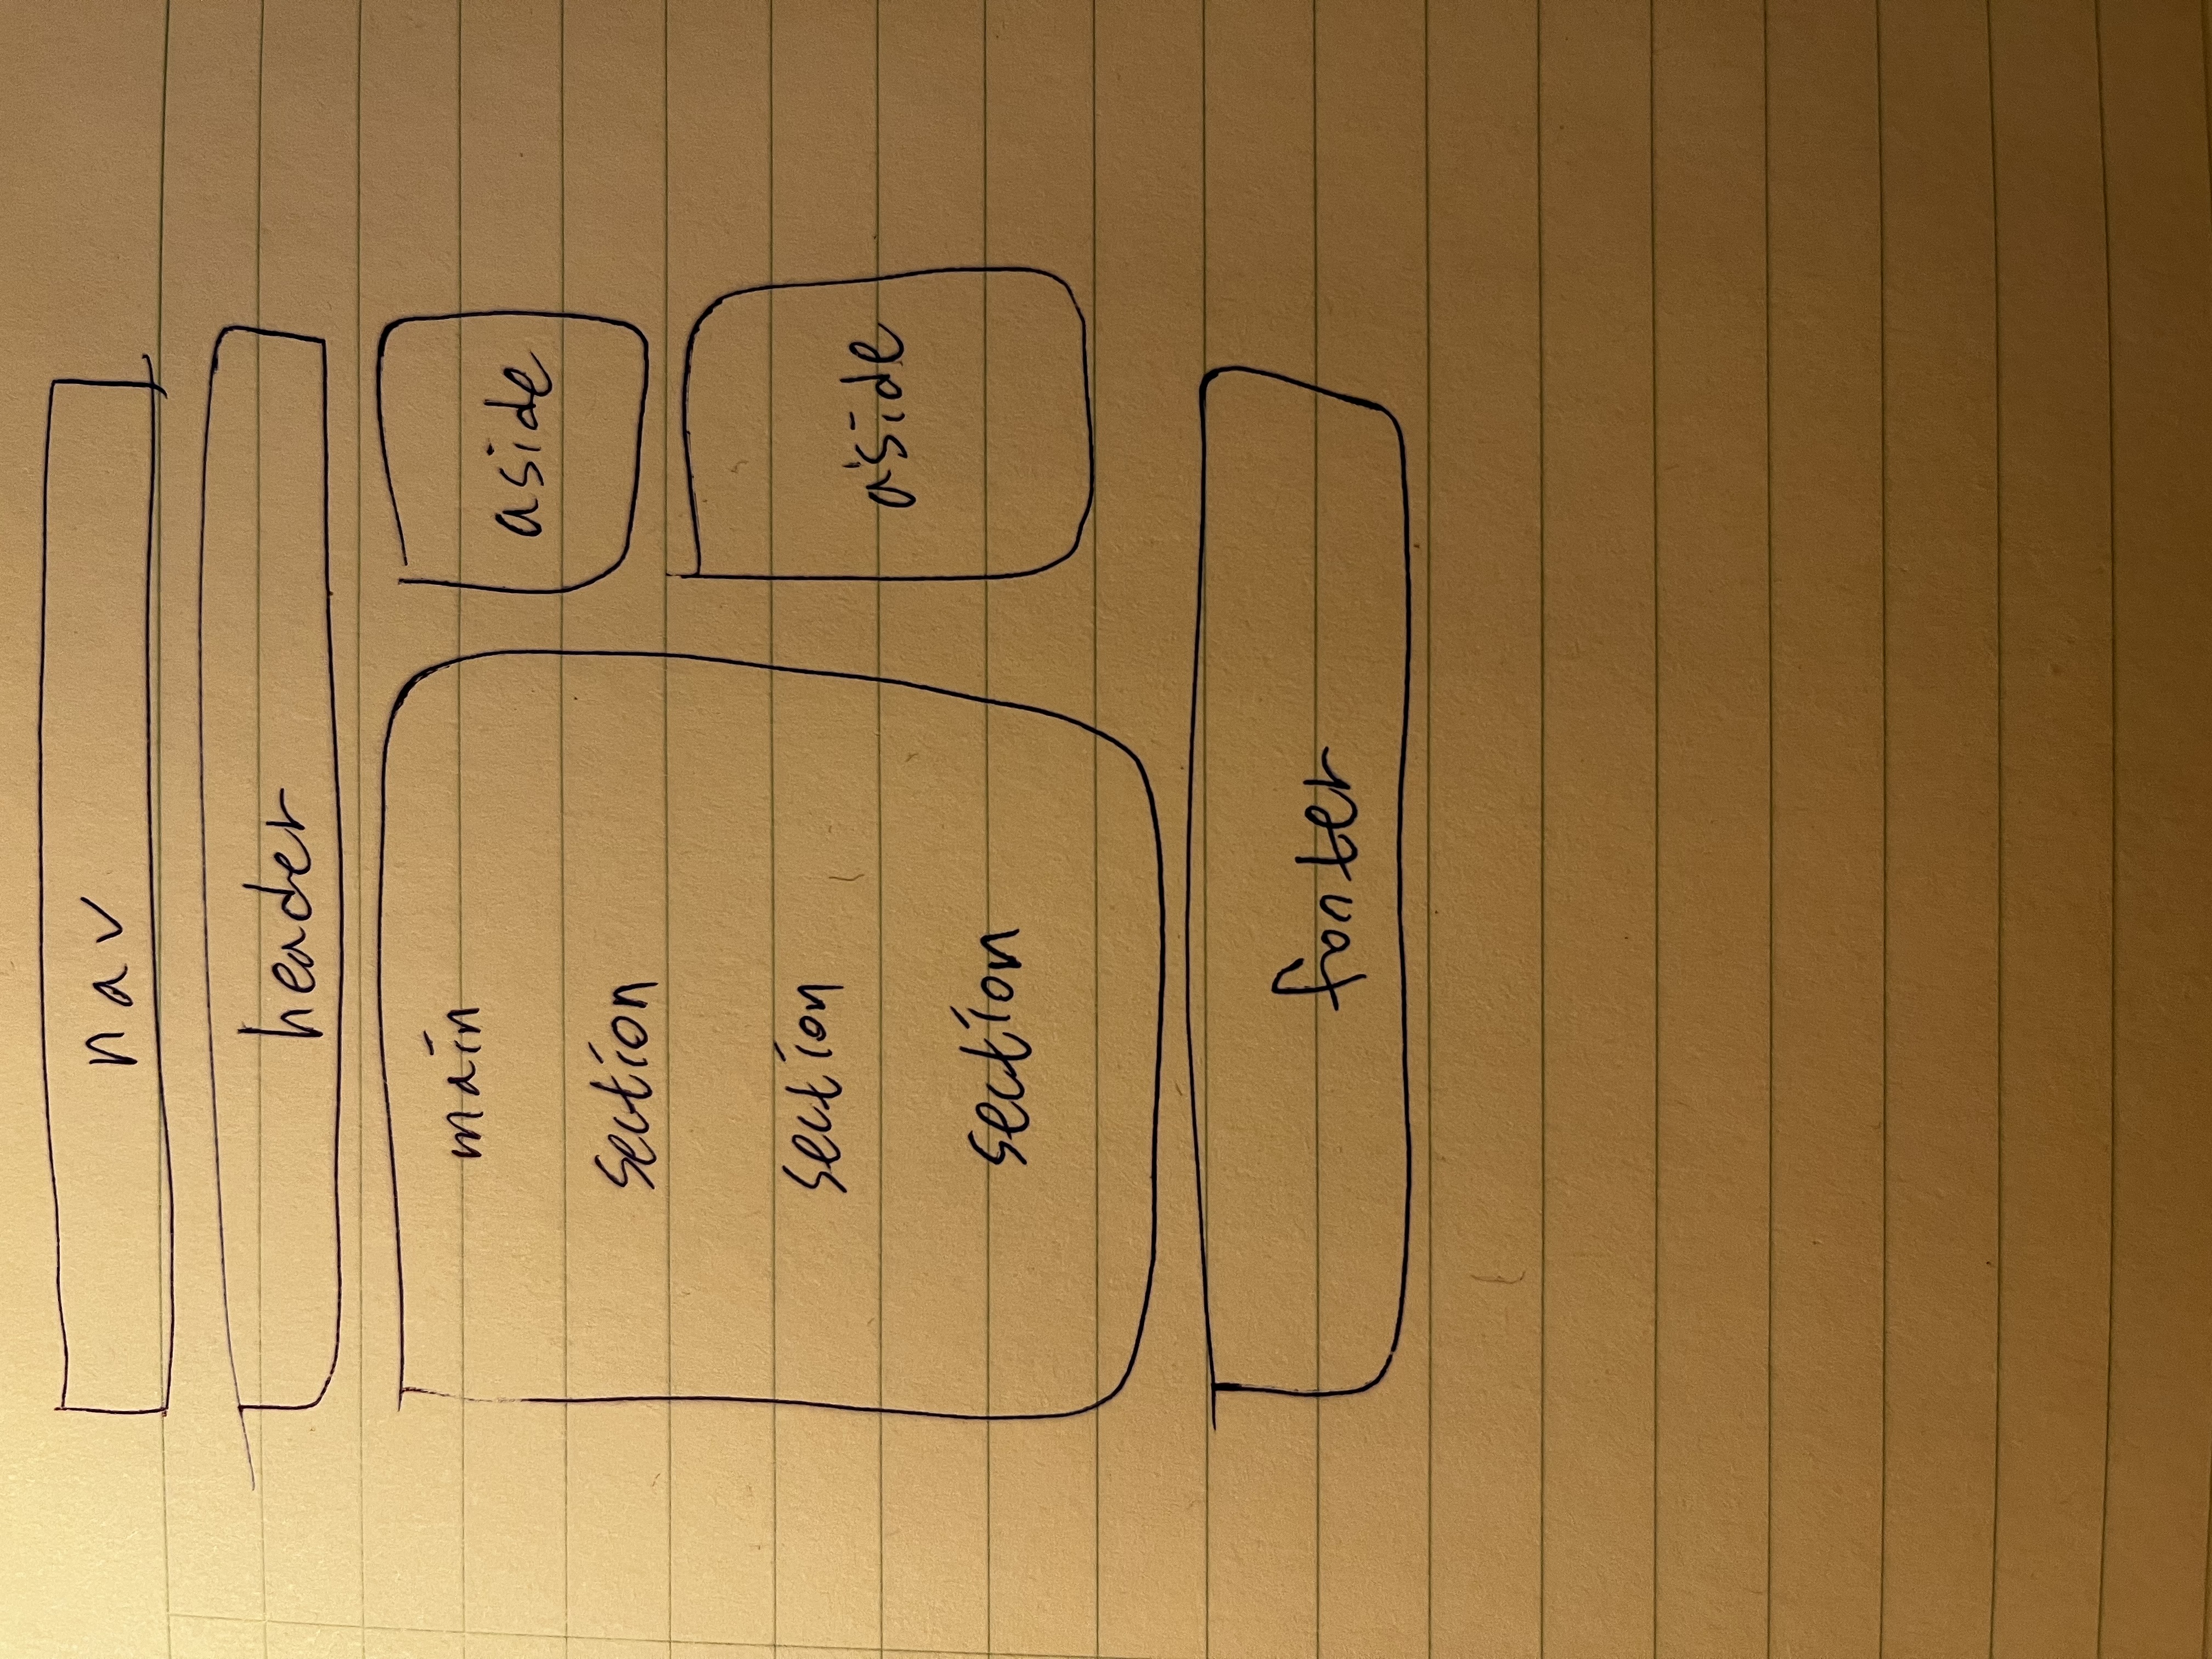 nav
header
main
section
section
section
aside
aside
footer